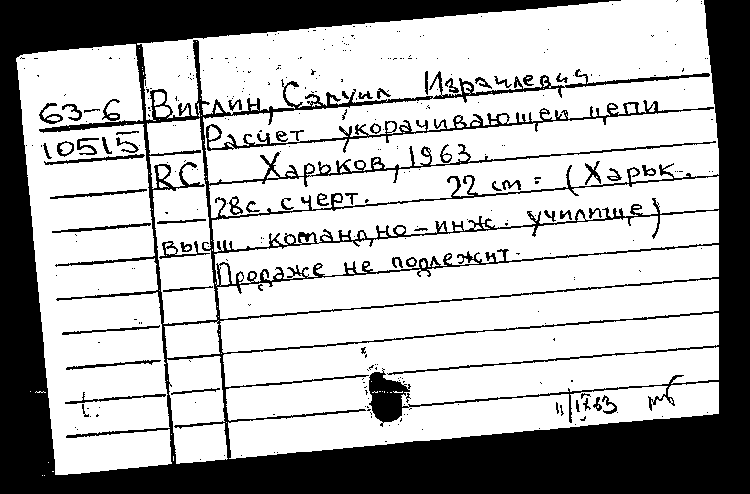 63-6 Виглин, Самуил Израилевич
10515 Расчет укорачивающей цепи
RC. Харьков, 1963.
28с. с черт. 22 cm = (Харьк.
высш. командно-инж. училище)
Продаже не подлежит.